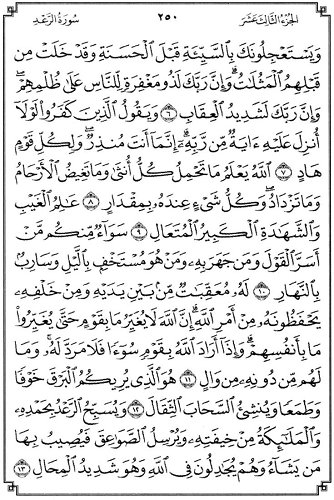 الجزء الثالث عشر ٢٥٠ سورة الرعد
وَيَسْتَعْجِلُونَكَ بِٱلسَّيِّئَةِ قَبْلَ ٱلْحَسَنَةِ وَقَدْ خَلَتْ مِن
قَبْلِهِمُ ٱلْمَثُلَٰتُ ۗ وَإِنَّ رَبَّكَ لَذُو مَغْفِرَةٍ لِّلنَّاسِ عَلَىٰ ظُلْمِهِمْ ۖ
وَإِنَّ رَبَّكَ لَشَدِيدُ ٱلْعِقَابِ ٦ وَيَقُولُ ٱلَّذِينَ كَفَرُوا۟ لَوْلَآ
أُنزِلَ عَلَيْهِ ءَايَةٌ مِّن رَّبِّهِۦٓ ۗ إِنَّمَآ أَنتَ مُنذِرٌ ۖ وَلِكُلِّ قَوْمٍ
هَادٍ ٧ ٱللَّهُ يَعْلَمُ مَا تَحْمِلُ كُلُّ أُنثَىٰ وَمَا تَغِيضُ ٱلْأَرْحَامُ
وَمَا تَزْدَادُ ۖ وَكُلُّ شَىْءٍ عِندَهُۥ بِمِقْدَارٍ ٨ عَٰلِمُ ٱلْغَيْبِ
وَٱلشَّهَٰدَةِ ٱلْكَبِيرُ ٱلْمُتَعَالِ ٩ سَوَآءٌ مِّنكُم مَّنْ
أَسَرَّ ٱلْقَوْلَ وَمَن جَهَرَ بِهِۦ وَمَنْ هُوَ مُسْتَخْفٍۭ بِٱلَّيْلِ وَسَارِبٌۢ
بِٱلنَّهَارِ ١٠ لَهُۥ مُعَقِّبَٰتٌ مِّنۢ بَيْنِ يَدَيْهِ وَمِنْ خَلْفِهِۦ
يَحْفَظُونَهُۥ مِنْ أَمْرِ ٱللَّهِ ۗ إِنَّ ٱللَّهَ لَا يُغَيِّرُ مَا بِقَوْمٍ حَتَّىٰ يُغَيِّرُوا۟
مَا بِأَنفُسِهِمْ ۗ وَإِذَآ أَرَادَ ٱللَّهُ بِقَوْمٍ سُوٓءًا فَلَا مَرَدَّ لَهُۥ ۚ وَمَا
لَهُم مِّن دُونِهِۦ مِن وَالٍ ١١ هُوَ ٱلَّذِى يُرِيكُمُ ٱلْبَرْقَ خَوْفًا
وَطَمَعًا وَيُنشِئُ ٱلسَّحَابَ ٱلثِّقَالَ ١٢ وَيُسَبِّحُ ٱلرَّعْدُ بِحَمْدِهِۦ
وَٱلْمَلَٰٓئِكَةُ مِنْ خِيفَتِهِۦ وَيُرْسِلُ ٱلصَّوَٰعِقَ فَيُصِيبُ بِهَا
مَن يَشَآءُ وَهُمْ يُجَٰدِلُونَ فِى ٱللَّهِ وَهُوَ شَدِيدُ ٱلْمِحَالِ ١٣